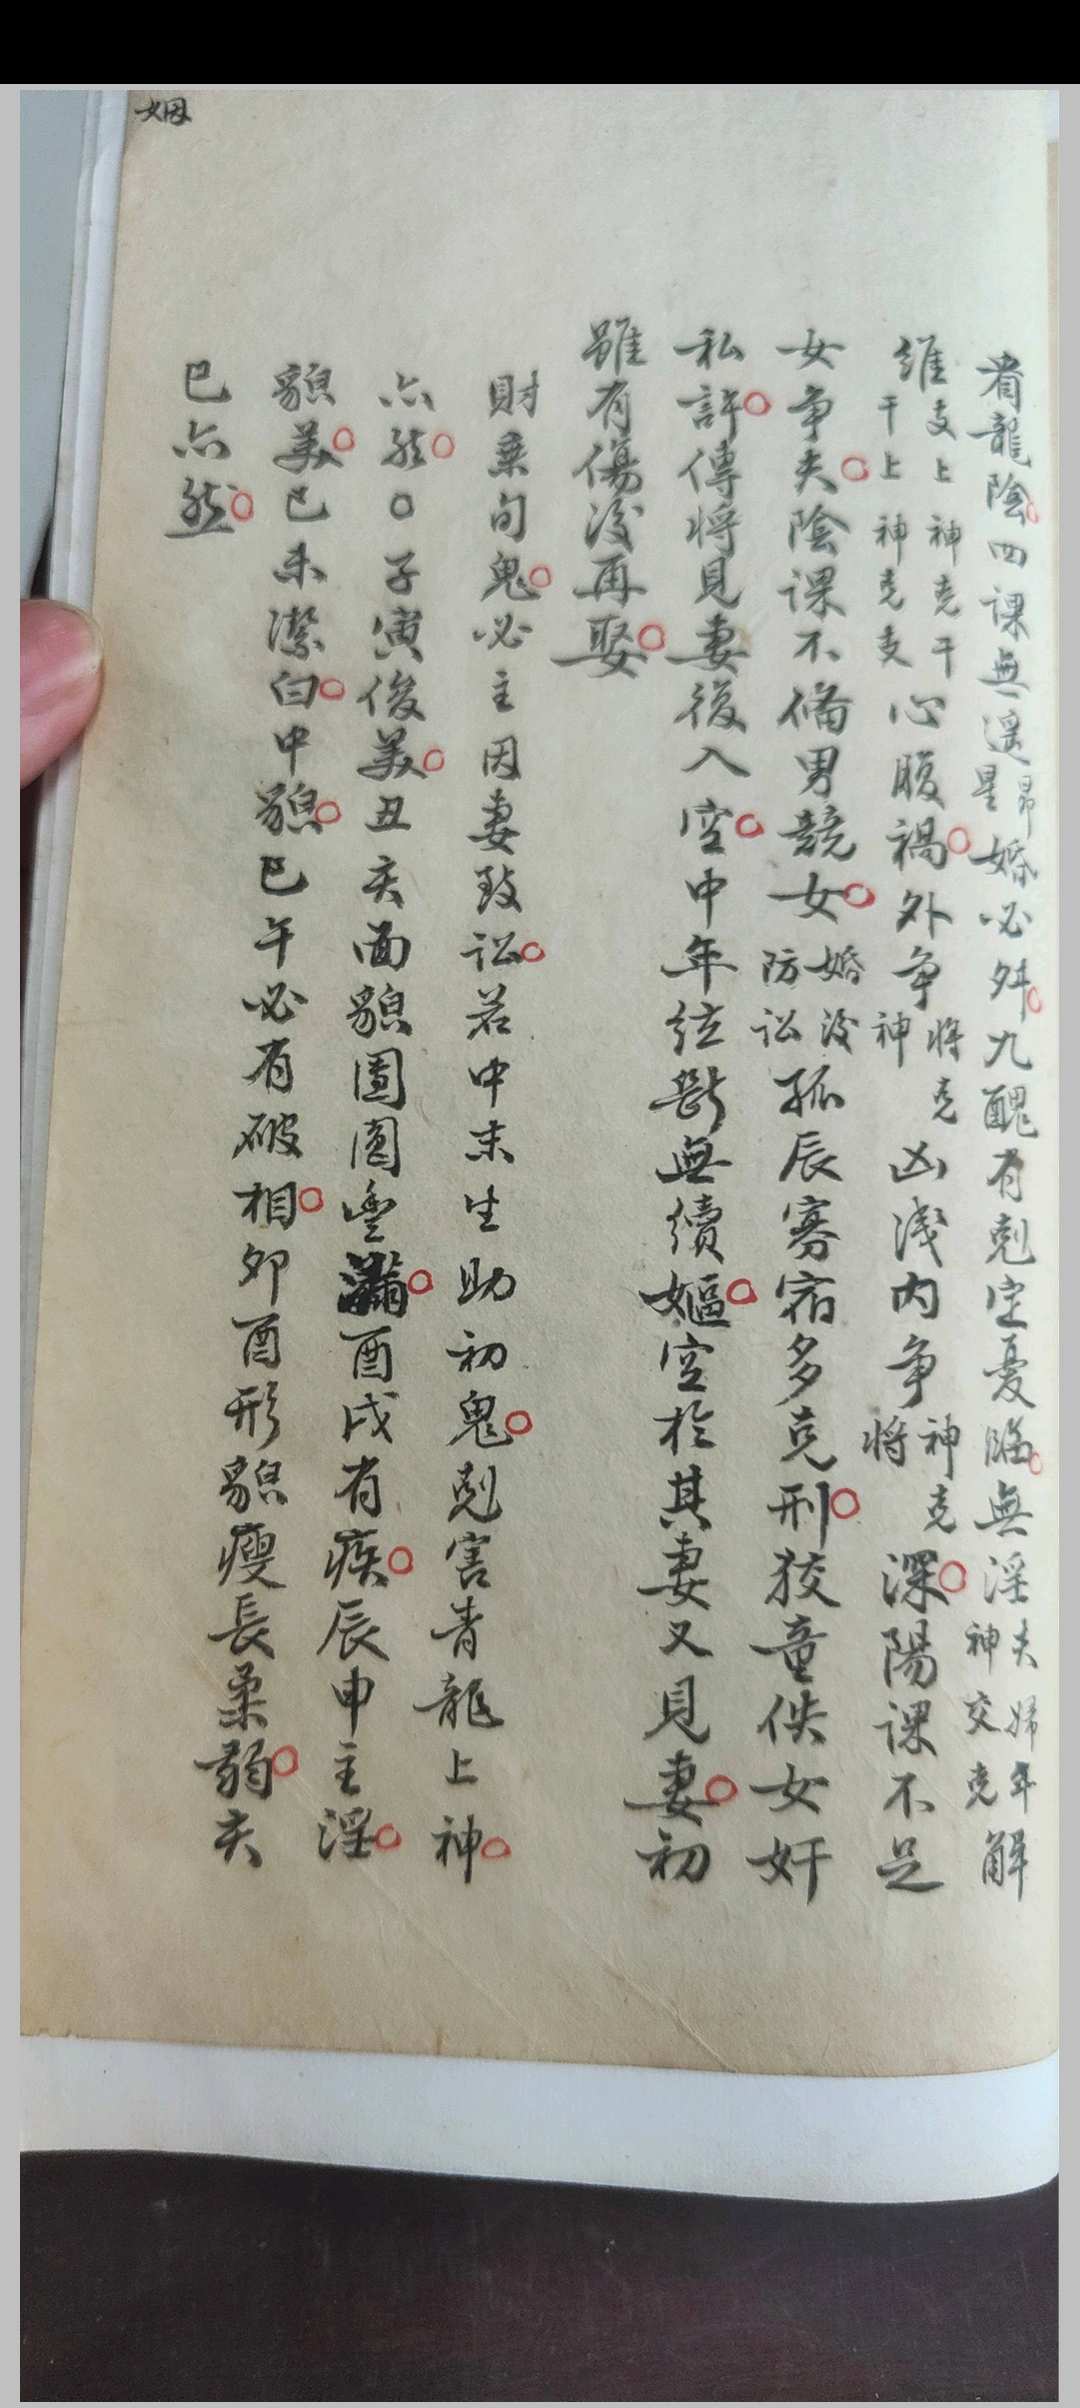 姻
看龍陰○四課無遥昴星婚必舛○九醜有剋定憂臨○無淫夫婦年神交克解
維支上神克干干上神克支心腹禍○外争將克神凶淺内争神克將深○陽課不足
女争夫○陰課不備男競女○婚後防訟孤辰寡宿多克刑○狡童佚女奸
私許○傳將見妻後入空○中年絃斷無續嫗○空於其妻又見妻○初
雖有傷後再娶○
財乘句鬼○必主因妻致訟○若中末生助初鬼○剋害青龍上神○
亦然○○子寅俊美○丑亥面貌團圓豐滿○酉戌有疾○辰申主淫○
貌美○巳未潔白○中貌○巳午必有破相○卯酉形貌瘦長柔弱○亥
巳亦然○